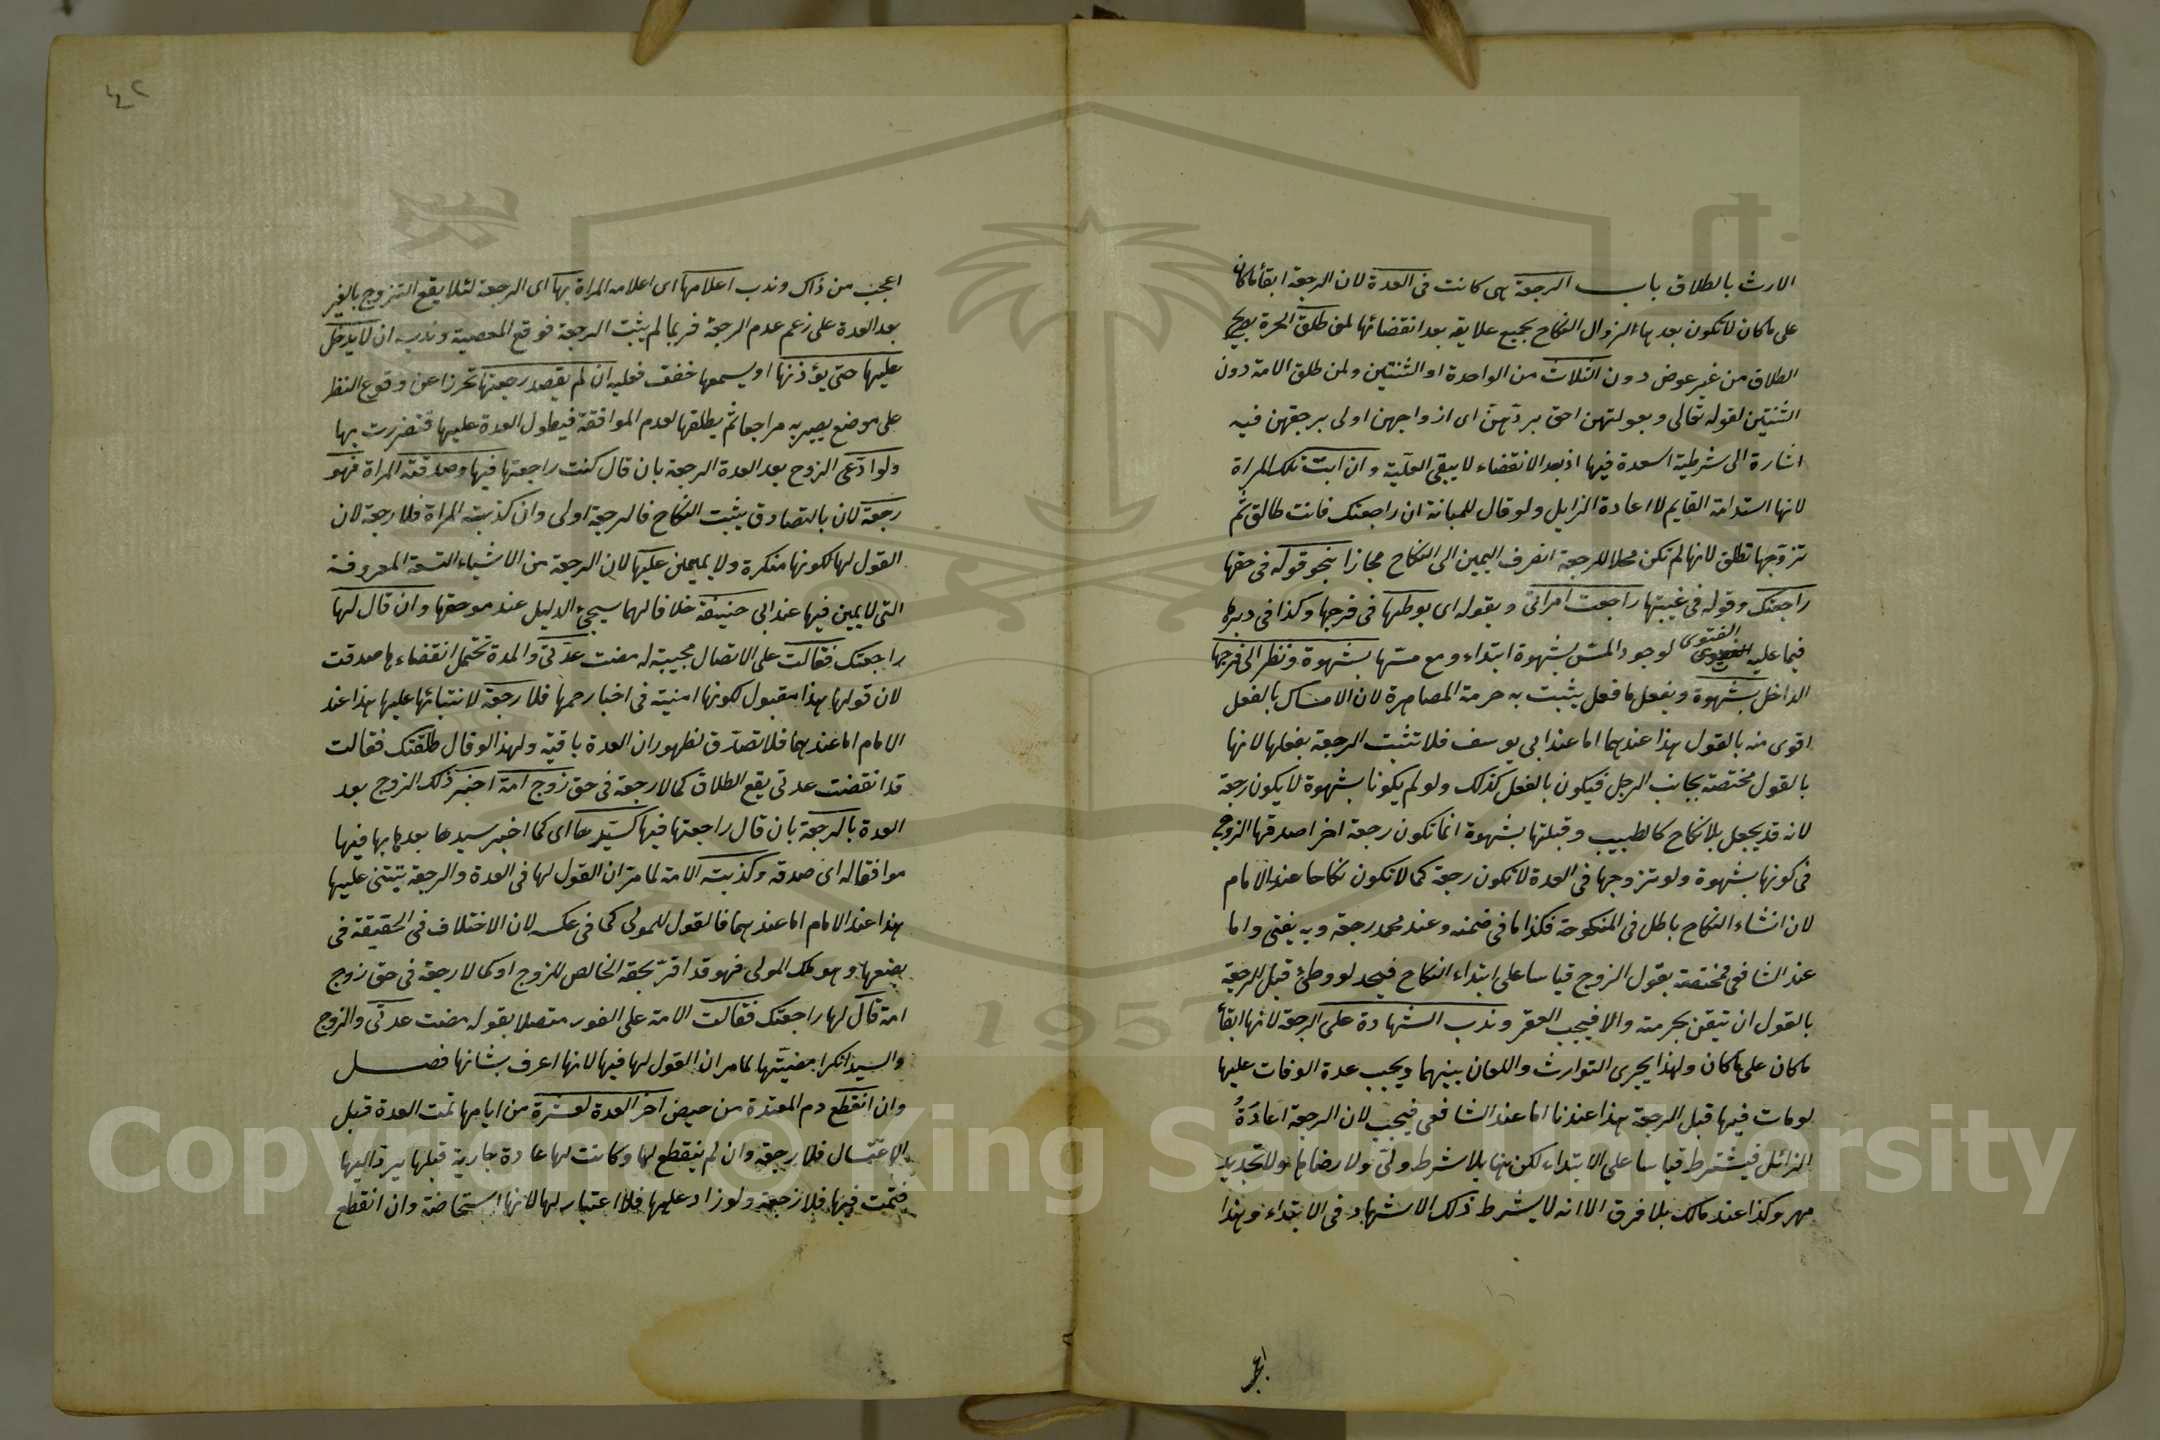 الارث بالطلاق باب الرجعة هى كانت فى العدة لان الرجعة ابقأ ماكان
على ماكان لاتكون بعدها لزوال النكاح بجميع علايقه بعد انقضائها لمن طلق الحرة بصريح
الطلاق من غير عوض دون الثلاث من الواحدة او الثنتين ولمن طلق الامة دون
الثنتين لقوله تعالى وبعولتهن احق بردهن اى ازواجهن اولى برجعتهن فيه
اشارة الى شرطية العدة فيها اذ بعد الانقضاء لا يبقى البعلية وان ابت تلك المراة
لانها استدامة القايم لا اعادة الزايل ولو قال للمبانة ان راجعتك فانت طالق ثم
تزوجها تطلق لانها لم تكن محلا للرجعة انصرف اليمين الى النكاح مجازا بنحو قوله فى حقها
راجعتك وقوله فى غيبتها راجعت امرأتى وبقوله اى بوطئها فى فرجها وكذا فى دبرها
فيما عليه الفتوى لوجود المس بشهوة ابتداء ومع مسها بشهوة ونظر الى فرجها
الداخل بشهوة وبفعل ما فعل يثبت به حرمة المصاهرة لان الامساك بالفعل
اقوى منه بالقول هذا عندهما اما عند ابى يوسف فلا تثبت الرجعة بفعلها لانها
بالقول مختصة بجانب الرجل فيكون بالفعل كذلك ولو لم يكونا بشهوة لايكون رجعة
لانه قد يجعل بلانكاح كالطبيب وقبلتها بشهوة انما تكون رجعة اخر اصدقها الزوج
فى كونها بشهوة ولو تزوجها فى العدة لاتكون رجعة كما لاتكون نكاحا عند الامام
لان انشاء النكاح باطل فى المنكوحة فكذا ما فى ضمنه وعند محمد رجعة وبه يفتى واما
عند الشافعى مختصة بقول الزوج قياسا على ابتداء النكاح فيحد لو وطئ قبل الرجعة
بالقول ان تيقن بحرمته والا فيجب العقر وندب الشهادة على الرجعة لانها ابقأ
ماكان على ماكان ولهذا يجرى التوارث واللعان بينهما ويجب عدة الوفات عليها
لو مات فيها قبل الرجعة هذا عندنا اما عند الشافعى فيجب لان الرجعة اعادة
الزائل فيشترط قياسا على الابتداء لكن هنا بلا شرط ولى ولا رضاها ولا تجديد
مهر وكذا عند مالك بلا فرق الا انه لا يشرط ذلك الاشهاد فى الابتداء وهذا
اعجب
٤٢
اعجب من ذاك وندب اعلامها اى اعلامه المراة بها اى الرجعة لئلا يقع التزوج بالغير
بعد العدة على زعم عدم الرجعة فربما لم يثبت الرجعة فوقع المعصية وندب ان لايدخل
عليها حتى يؤذنها او يسمعها خفق نعليه ان لم يقصد رجعتها تحرزا عن وقوع النظر
على موضع يصير به مراجعا ثم يطلقها لعدم الموافقة فيطول العدة عليها فتضررت بها
ولو ادعى الزوج بعد العدة الرجعة بان قال كنت راجعتها فيها وصدقته المراة فهو
رجعة لان بالتصادق يثبت النكاح فالرجعة اولى وان كذبته المراة فلا رجعة لان
القول لها لكونها منكرة ولا يمين عليها لان الرجعة من الاشياء التسعة المعروفة
التى لايمين فيها عند ابى حنيفة خلافا لهما سيجئ الدليل عند موضعها وان قال لها
راجعتك فقالت على الاتصال مجيبة له مضت عدتى والمدة تحتمل انقضاءها صدقت
لان قولها هذا مقبول لكونها امنية فى اخبار رحمها فلا رجعة لانتبائها عليها هذا عند
الامام اما عندهما فلا تصدق لظهور ان العدة باقية ولهذا لو قال طلقتك فقالت
قد انقضت عدتى يقع الطلاق كما لا رجعة فى حق زوج امة اخبر ذلك الزوج بعد
العدة بالرجعة بان قال راجعتها فيها كسيدها اى كما اخبر سيدها بعدها بها فيها
موافقا له اى صدقه وكذبته الامة لما مر ان القول لها فى العدة والرجعة تبتنى عليها
هذا عند الامام اما عندهما فالقول للمولى كما فى عكسه لان الاختلاف فى الحقيقة فى
بضعها وهو ملك المولى فهو قد اقر بحقه الخالص للزوج او كما لا رجعة فى حق زوج
امة قال لها راجعتك فقالت الامة على الفور متصلا بقوله مضت عدتى والزوج
والسيد انكرا مضيتها لما مر ان القول لها فيها لانها اعرف بشانها فصل
وان انقطع دم المعتدة من حيض اخر العدة لعشرة من ايامها تمت العدة قبل
الاغتسال فلا رجعة وان لم ينقطع لها وكانت لها عادة جارية قبلها يرد اليها
فتمت فيها فلا رجعة ولو زاد عليها فلا اعتبار لها لانها استحاضة وان انقطع
1957
Copyright © King Saud University